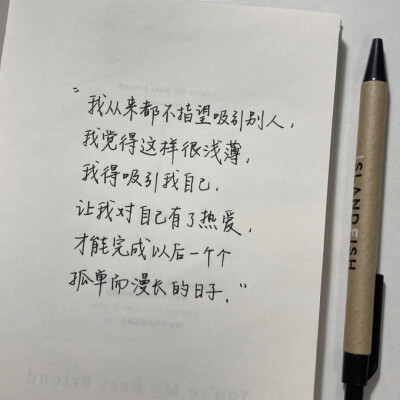 "我从来都不指望吸引别人,
我觉得这样很浅薄,
我得吸引我自己.
让我对自己有了热爱,
才能完成以后一个个
孤单而漫长的日子."
ISLANDFISH
You're My Best Friend